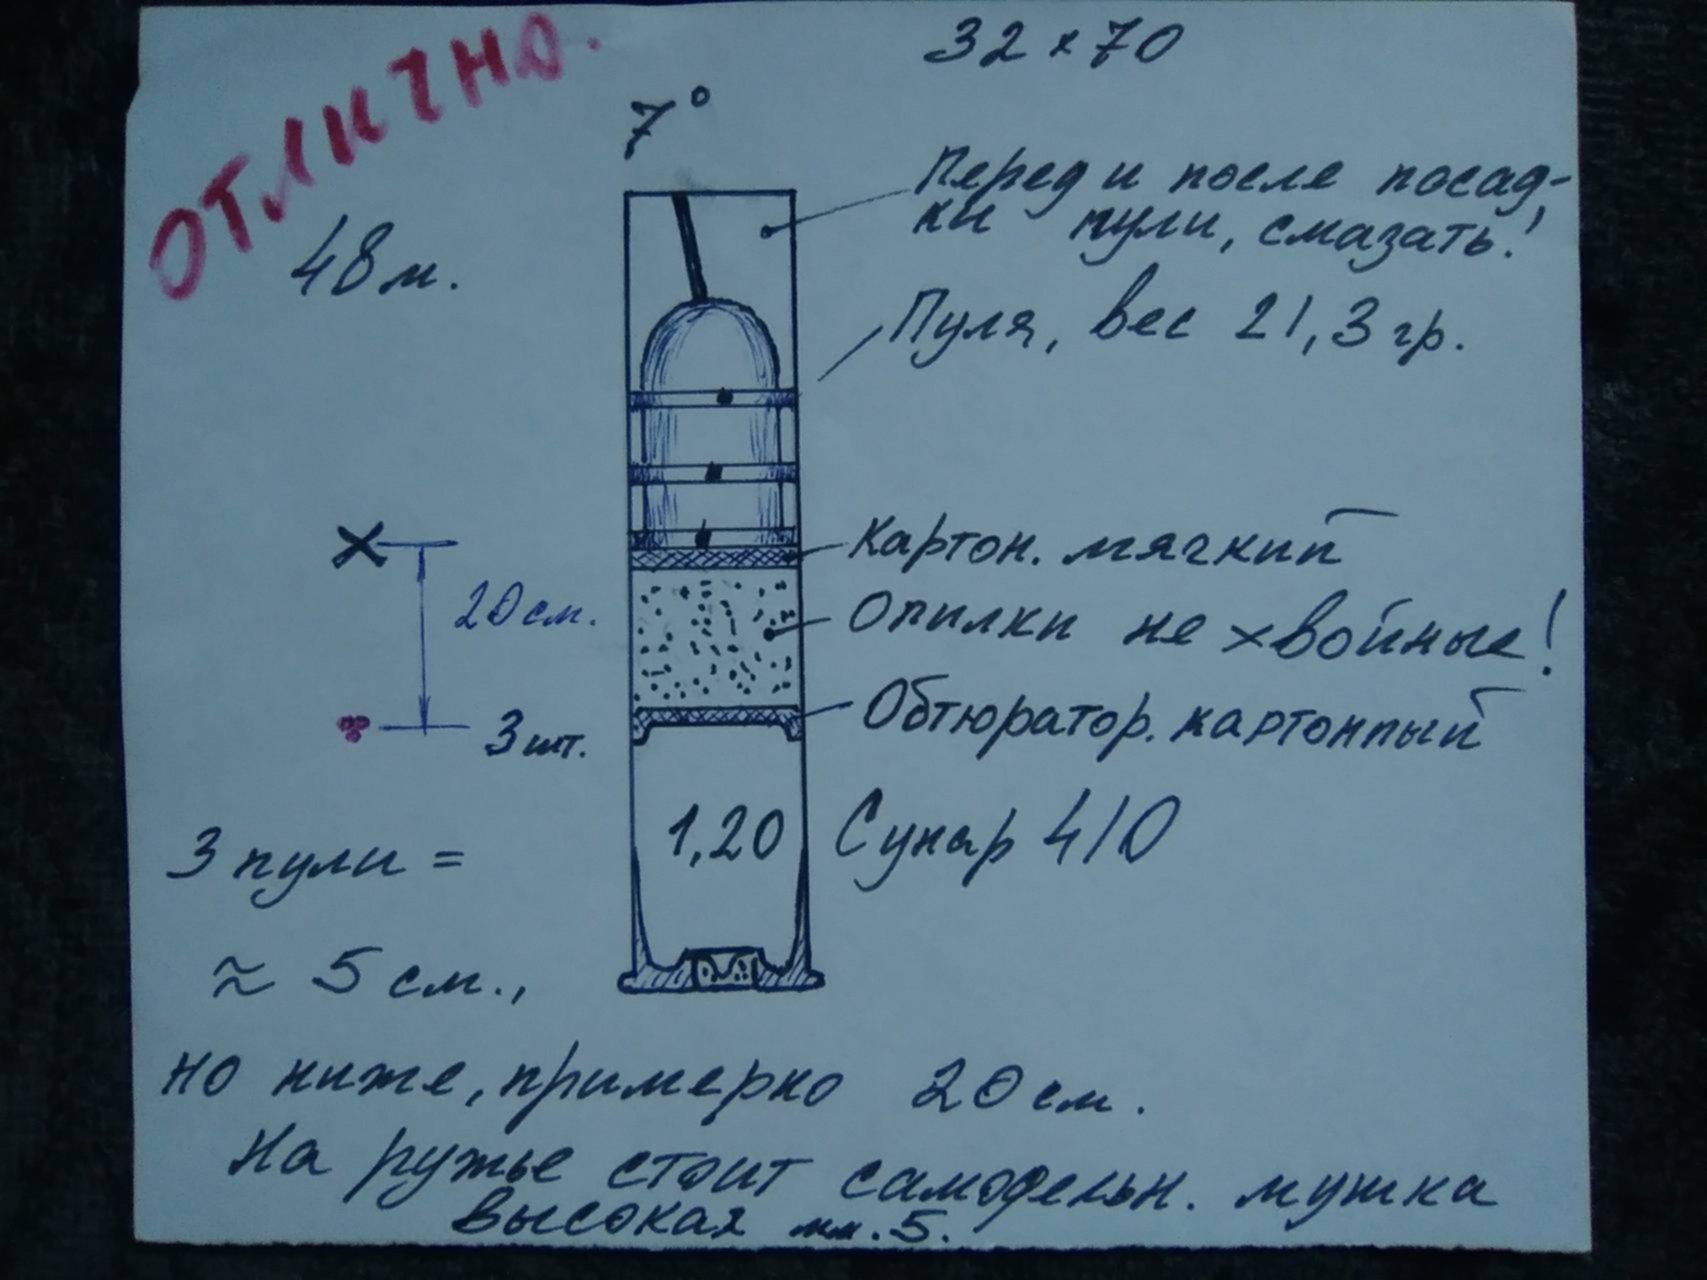 ОТЛИЧНО.
32 × 70
7°
48 м.
Перед и после посад-
ки пули, смазать!
Пуля, вес 21,3 гр.
Картон. мягкий
20 см.
Опилки не хвойные!
Обтюратор. картонный
3 шт.
1,20 Сунар 410
3 пули =
≈ 5 см.,
но ниже, примерно 20 см.
На ружье стоит самодельн. мушка
высокая мм. 5.